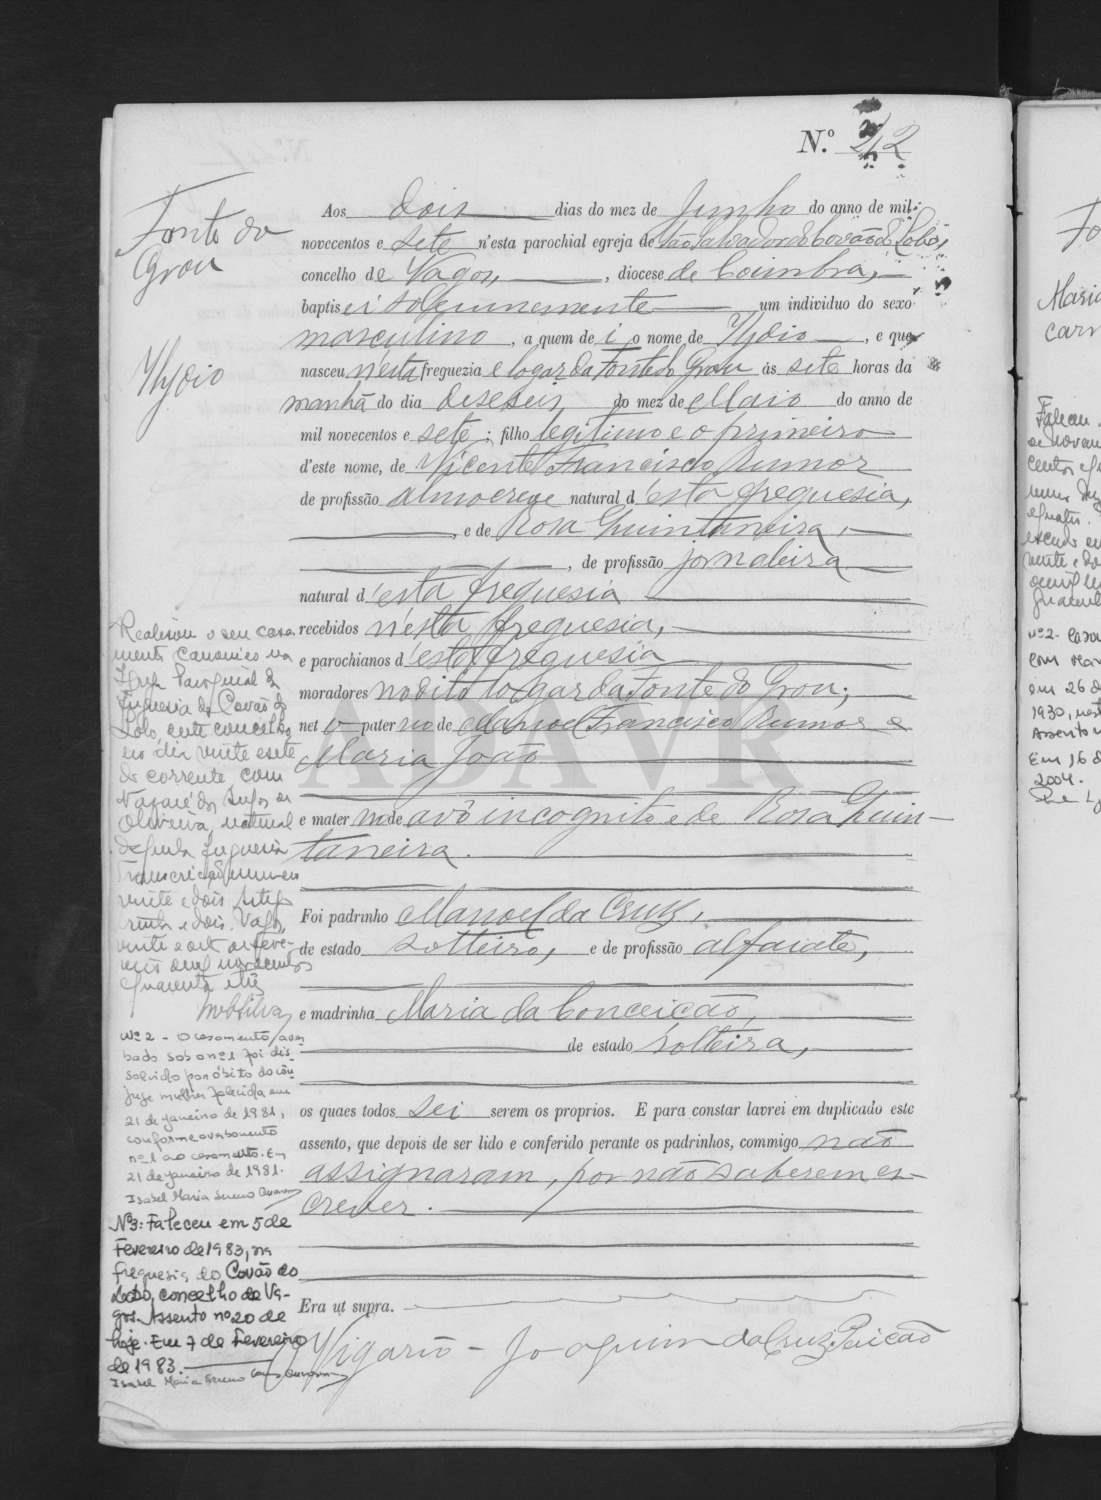 N.º 42
Fonte do
Grou
Ilydio
Aos dois dias do mez de Junho do anno de mil
novecentos e sete n'esta parochial egreja de São Salvador do Covão do Lobo,
concelho de Vagos, diocese de Coimbra,
baptisei solemnemente um individuo do sexo
masculino, a quem dei o nome de Ilydio, e que
nasceu n'esta freguezia e logar da Fonte do Grou ás sete horas da
manhã do dia deseseis do mez de Maio do anno de
mil novecentos e sete; filho legitimo e o primeiro
d'este nome, de Vicente Francisco Rumor
de profissão almocreve natural d'esta freguesia,
, e de Rosa Quintaneira,
, de profissão jornaleira
natural d'esta freguesia
recebidos n'esta freguesia,
e parochianos d'esta freguesia
moradores no dito logar da Fonte do Grou;
neto paterno de Manoel Francisco Rumor e
Maria João
e materno de avô incognito e de Rosa Quin-
taneira.
Foi padrinho Manoel da Cruz,
de estado solteiro, e de profissão alfaiate,
e madrinha Maria da Conceição,
de estado solteira,
os quaes todos sei serem os proprios. E para constar lavrei em duplicado este
assento, que depois de ser lido e conferido perante os padrinhos, commigo não
assignaram, por não saberem es-
crever.
Era ut supra.
O Vigario - Joaquim da Cruz Paicão
Realisou o seu casa
mento canonico na
Igreja Paroquial da
freguesia do Covão do
Lobo, deste concelho
no dia vinte e sete
do corrente com
Nazaré dos Anjos de
Oliveira, natural
desta freguesia
Transcrição numero
vinte e dois
trinta e dois. Vagos,
vinte e oito de feve-
reiro de mil novecentos
quarenta e três
Nº 2 - O casamento aver
bado sob o nº 1 foi dis-
solvido por óbito do côn
juge mulher falecida em
21 de janeiro de 1981,
conforme averbamento
nº 1 ao casamento. Em
21 de janeiro de 1981.
Isabel Maria
Nº3: Faleceu em 5 de
Fevereiro de 1983, na
freguesia do Covão do
Lobo, concelho de Va-
gos. Assento nº 20 de
hoje. Em 7 de Fevereiro
de 1983.
Isabel Maria
ADAVR
Maria
Faleceu
nº2- Casou
com
em 26 d
1930, nest
Assento n
Em 16 d
2004.